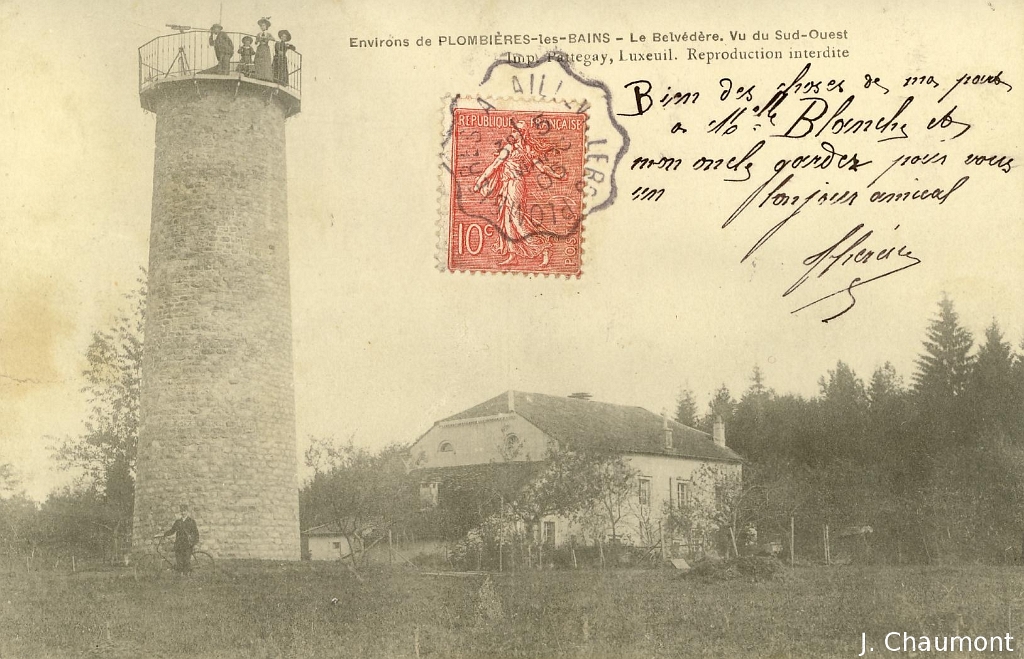 Environs de PLOMBIÈRES-les-BAINS - Le Belvédère. Vu du Sud-Ouest
Imp. Pattegay, Luxeuil. Reproduction interdite
Bien des choses de ma part
a Melle Blanche et
mon oncle gardez pour vous
un bonjour amical
REPUBLIQUE FRANÇAISE
10c
POSTES
AILLEVILLERS
J. Chaumont